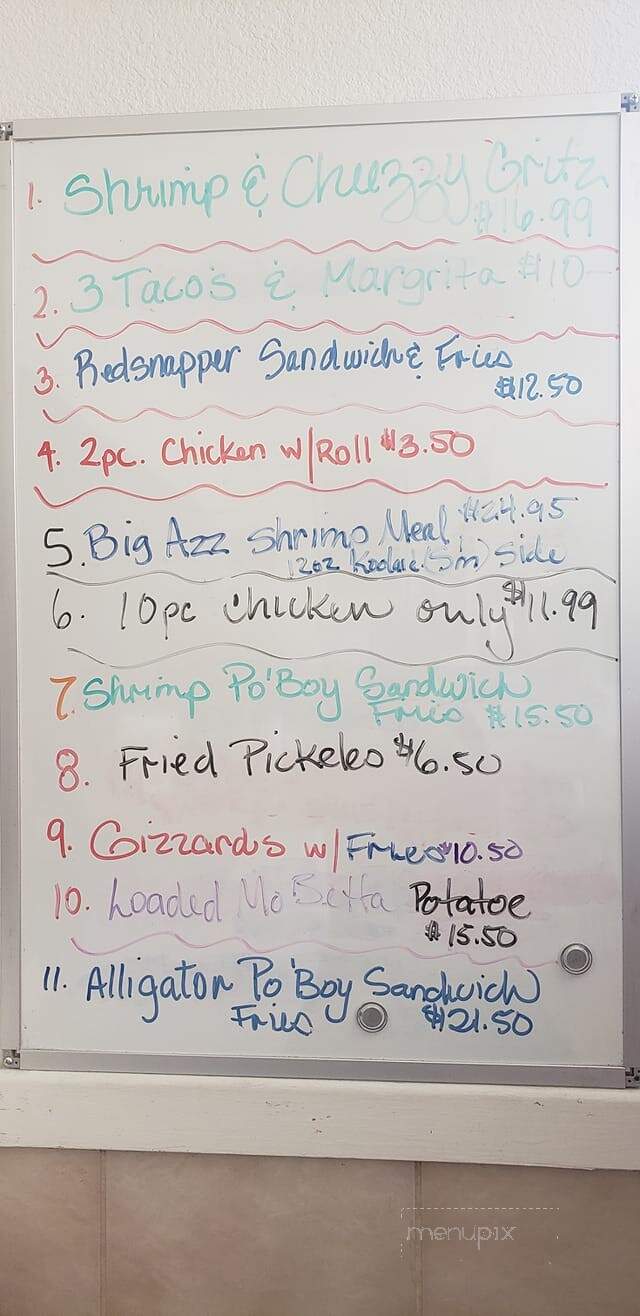 1. Shrimp & Cheezzy Gritz
$16.99
2. 3 Tacos & Margrita $10-
3. Redsnapper Sandwich & Fries
$12.50
4. 2pc. Chicken w/Roll $3.50
5. Big Azz Shrimp Meal $24.95
12oz Koolaid (Sm) Side
6. 10pc Chicken only $11.99
7. Shrimp Po'Boy Sandwich
Fries $15.50
8. Fried Pickeles $6.50
9. Gizzards w/Fries $10.50
10. Loaded Mo Betta Potatoe
$15.50
11. Alligator Po'Boy Sandwich
Fries $21.50
menupix